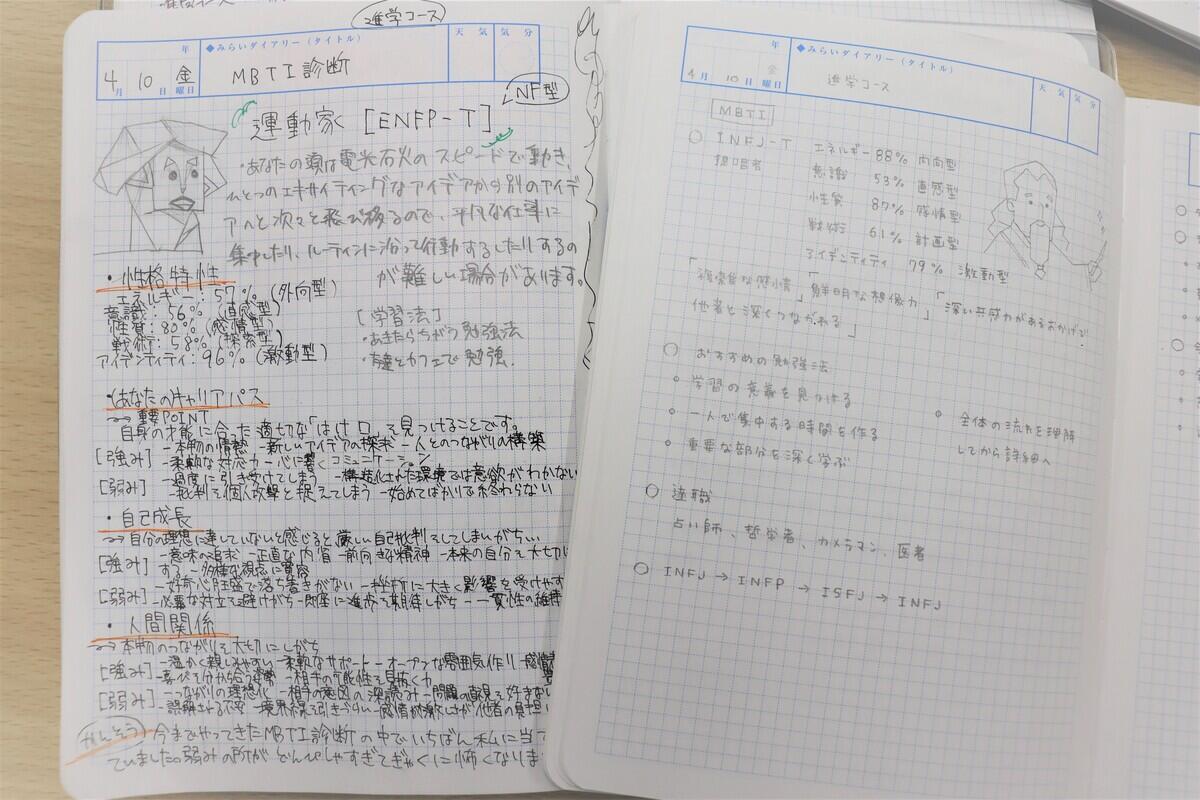 進学コース
年
◆みらいダイアリー（タイトル）
天 気
気 分
4月 10日 金曜日
MBTI診断
NF型
運動家 [ENFP-T]
・あなたの頭は電光石火のスピードで動き、
ひとつのエキサイティングなアイデアから別のアイデ
アへと次々と飛び移るので、平凡な仕事に
集中したり、ルーティンに沿って行動するしたりするの
が難しい場合があります。
・性格特性
エネルギー：57%（外向型）
意識：56%（直感型）
性質：80%（感情型）
戦術：58%（探索型）
アイデンティティ：96%（激動型）
[学習法]
・あきたらちがう勉強法
・友達とカフェで勉強.
・(あなたの)キャリアパス
重要POINT
自身の才能に合った適切な「はけ口」を見つけることです。
[強み] －本物の情熱 －新しいアイデアの探求 －人とのつながりの構築
－柔軟な対応力 －心に響くコミュニケーション
[弱み] －過度に引き受けてしまう －構造化された環境では意欲がわかない
－批判を個人攻撃と捉えてしまう －始めてばかりで終わらない
・自己成長
自分の理想に達していないと感じると厳しい自己批判をしてしまいがち
[強み] －意味の追求 －正直な内省 －前向きな精神 －本来の自分を大切に
する －多種な視点に寛容
[弱み] －好奇心旺盛で落ち着きがない －挫折に大きく影響を受けやす
－必要な対立を避けがち －即座に進歩を期待しがち －一貫性の維持
・人間関係
本物のつながりを大切にしがち
[強み] －温かく親しみやすい －柔軟なサポート －オープンな雰囲気作り －感情
－喜びを分かち合う －相手の可能性を見抜く力
[弱み] －つながりの理想化 －相手の意図の深読み －問題の直視を好まない
－誤解される不安 －境界線を引きづらい －感情が激しさが他者の負担
かんそう 今までやってきたMBTI診断の中でいちばん私に当て
ていました。弱みの所が どんぴしゃすぎてぎゃくに怖くなりま
年
◆みらいダイアリー（タイトル）
天 気
気 分
4月 10日 金曜日
進学コース
MBTI
○ INFJ-T
提唱者
エネルギー 88% 内向型
意識 53% 直感型
性質 87% 感情型
戦術 61% 計画型
アイデンティティ 79% 激動型
「複雑な感情」「鮮明な想像力」「深い共感力があるおかげで
他者と深くつながれる」
○ おすすめの勉強法
○ 学習の意義を見つける
○ 一人で集中する時間を作る
○ 重要な部分を深く学ぶ
○ 全体の流れを理解
してから詳細へ
○ 適職
占い師、哲学者、カメラマン、医者
○ INFJ → INFP → ISFJ → INFJ